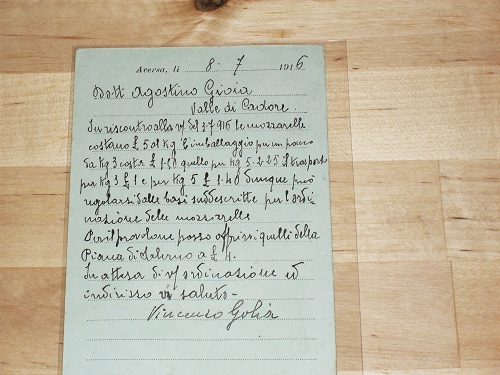 Aversa, lì 8 - 7 1916
Dott Agostino Gioia
Valle di Cadore.
In riscontro alla vs/ del 3-7-916 le mozzarelle
costano £ 5 al kg l'imballaggio per un pacco
da kg 3 costa £ 1.80 quello per kg 5 2.25 il trasporto
per kg 3 £ 1 e per kg 5 £ 1.40 dunque può
regolarsi dalle basi suddescritte per l'ordi
nazione delle mozzarelle
Per il provolone posso offrirvi quelli della
Piana di Salerno a £ 4.
In attesa di vs/ ordinazione ed
indirizzo vi saluto -
Vincenzo Golia